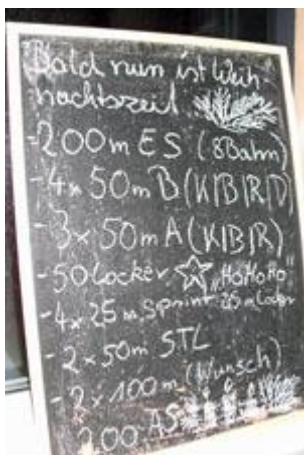 Bald nun ist Weih-
nachtszeit
- 200m ES (8Bahn)
- 4x 50m B (K|B|R|D)
- 3x 50m A (K|B|R)
- 50 locker "HoHoHo"
- 4x 25m Sprint 25m locker
- 2x 50m STL
- 2x 100m (Wunsch)
200 AS